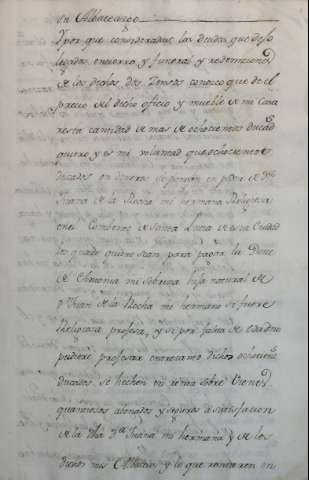 su Albaceasgo
Y por que consideradas las deudas que dejo
legados entierro y funeral y redempcion
de los dichos dos zensos conozco que de el
precio del dicho oficio y mueble de mi Casa
resta cantidad de mas de ochocientos ducados
quiero y es mi voluntad que ochocientos
ducados en dineros se pongan en poder de Dª
Juana de la Rocha mi hermana Religiosa
en el Combento de Santa Lucia de esta Ciudad
los quales quiero sean para pagar la Dote
de mi sobrina hija natural de
D Juan de la Rocha mi hermano si fuere
Religiosa profesa, y si por falta de edad no
pudiere profesar entretanto dichos ochocientos
ducados se hechen en renta sobre vienes
quantiosos abonados y seguros a satisfacion
de la dha Dª Juana mi hermana y de los
dichos mis Albaceas y lo que rentaren en